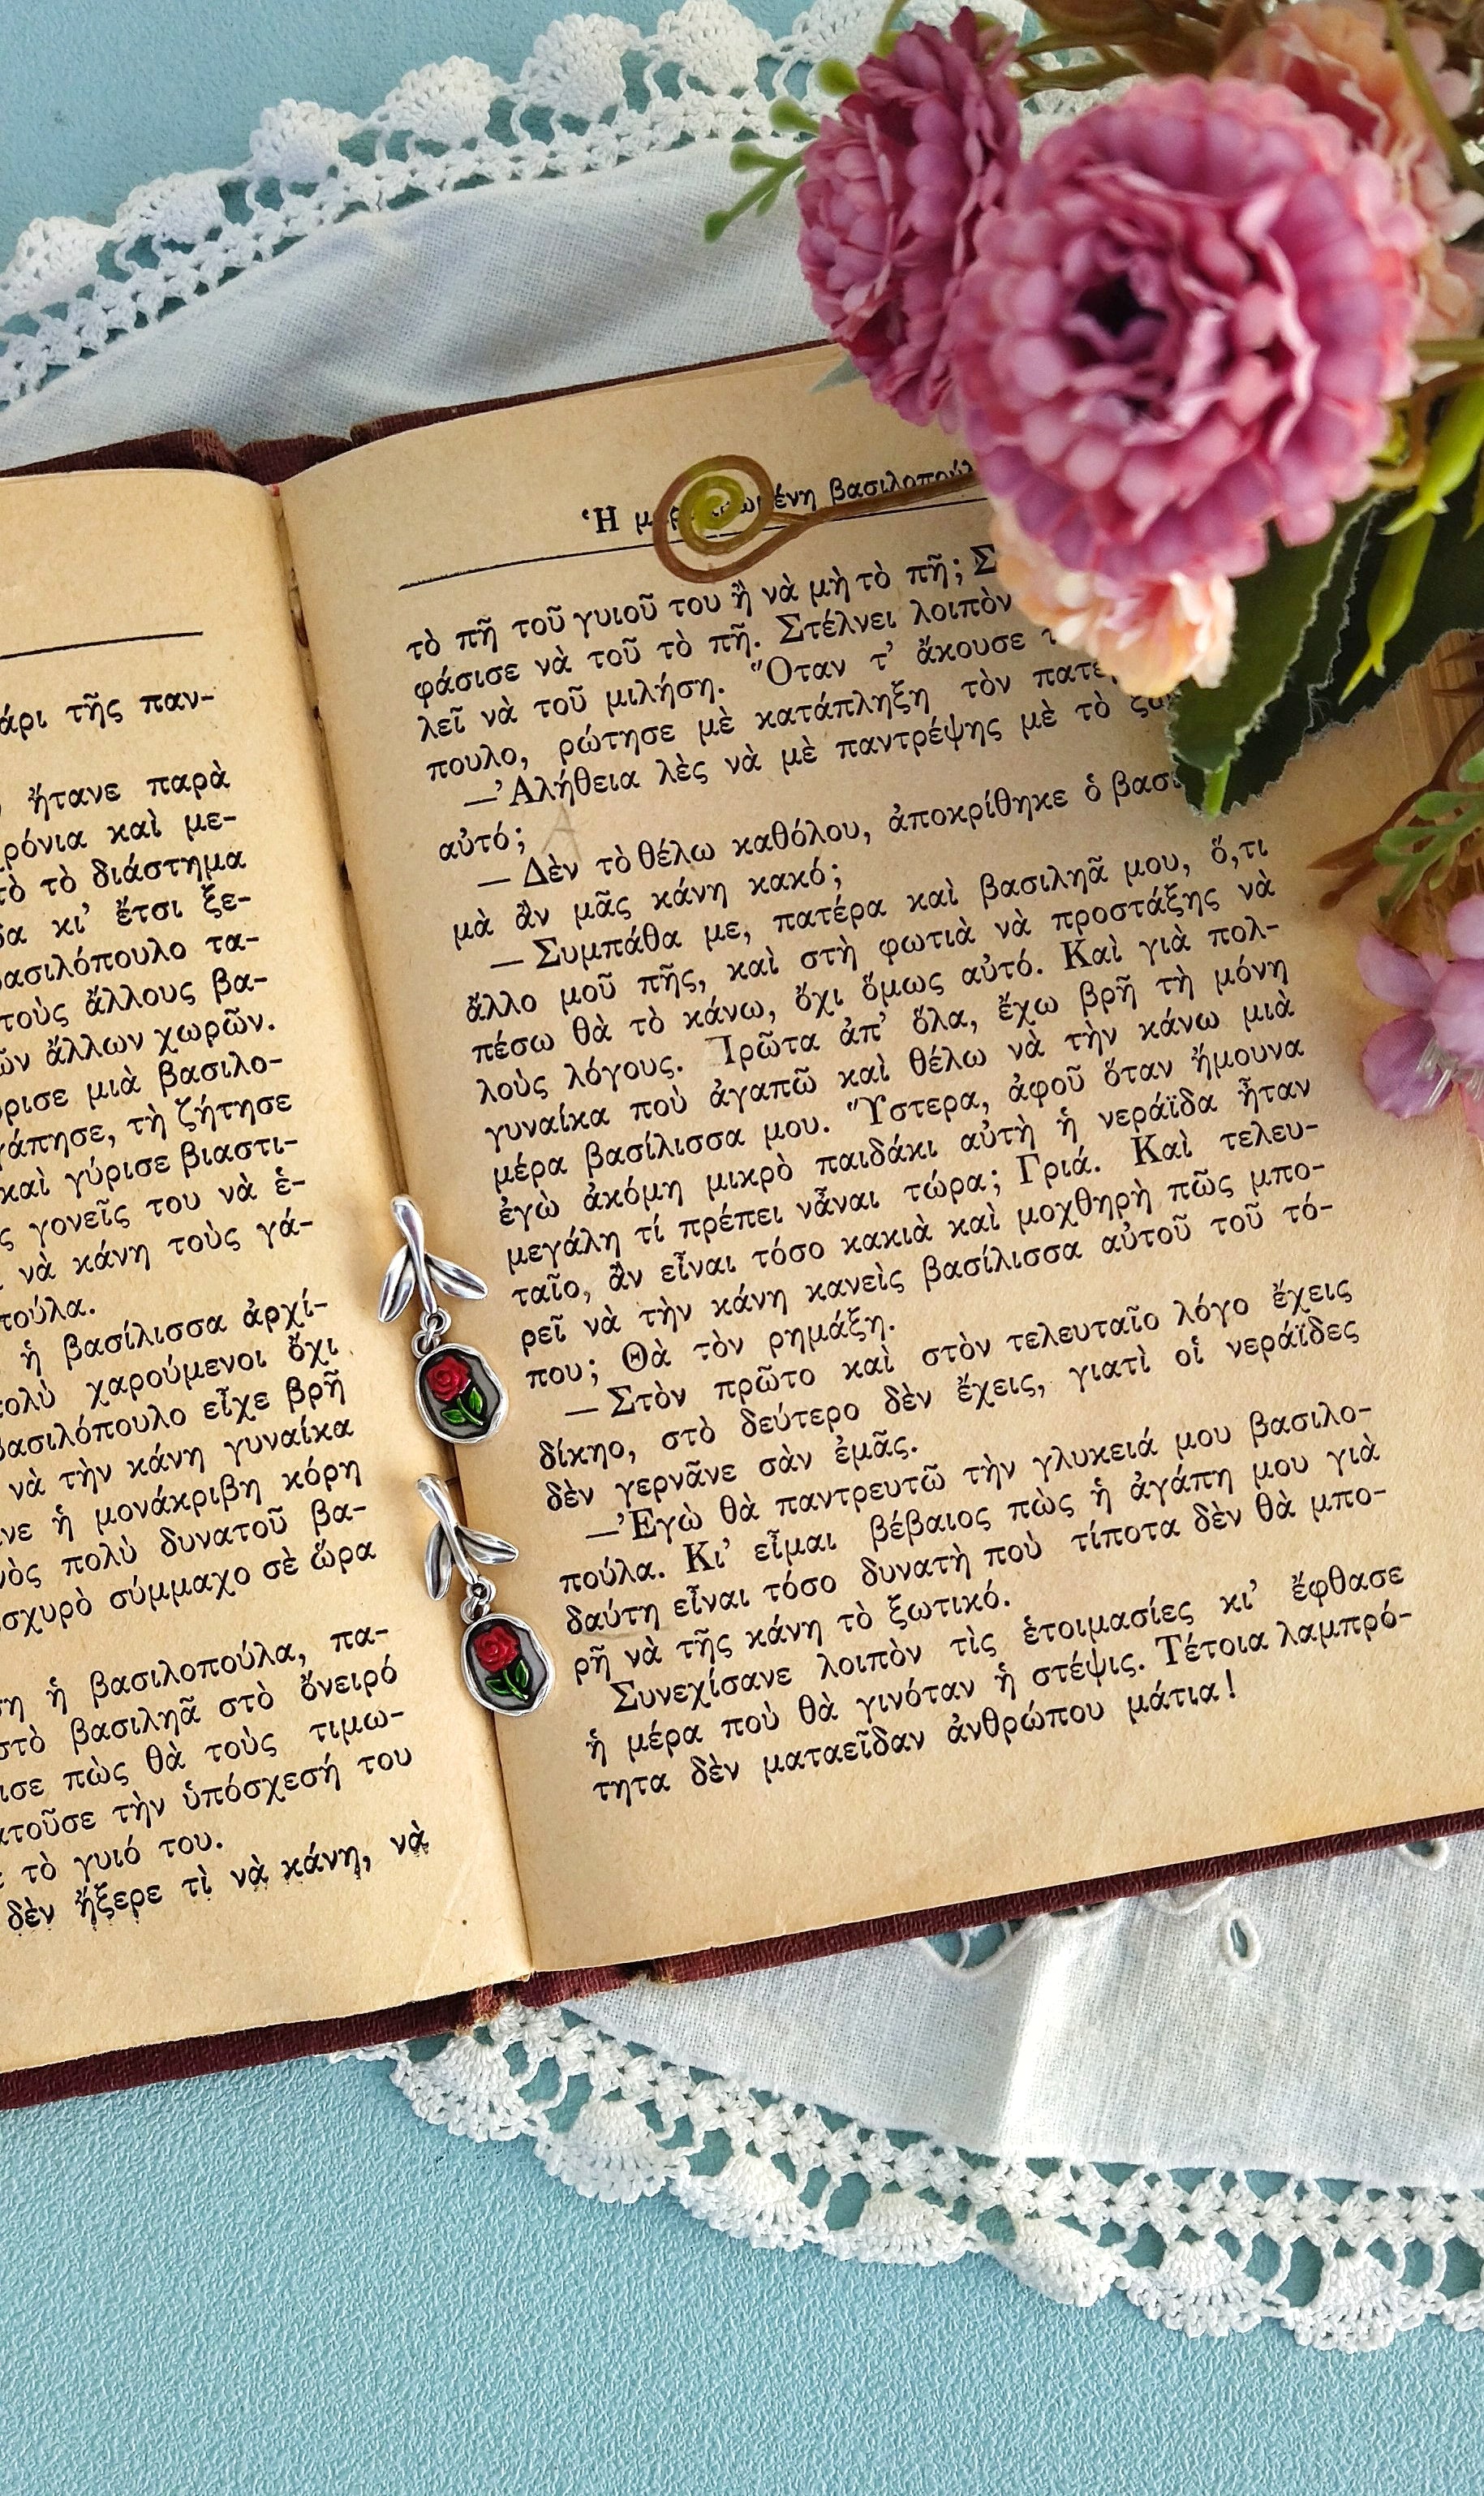 τῆς παν-
ἤτανε παρὰ
καὶ με-
τὸ διάστημα
κι’ ἔτσι ξε-
τα-
τοὺς ἄλλους βα-
ἄλλων χωρῶν.
μιὰ βασιλο-
τὴ ζήτησε
καὶ γύρισε βιαστι-
γονεῖς του νὰ ἑ-
νὰ κάνη τοὺς γά-
ἡ βασίλισσα ἀρχί-
χαρούμενοι ὄχι
εἶχε βρῆ
νὰ τὴν κάνη γυναίκα
ἡ μονάκριβη κόρη
πολὺ δυνατοῦ βα-
σύμμαχο σὲ ὥρα
ἡ βασιλοπούλα, πα-
βασιληᾶ στὸ ὄνειρό
πὼς θὰ τοὺς τιμω-
τὴν ὑπόσχεσή του
τὸ γυιό του.
δὲν ἤξερε τὶ νὰ κάνη, νὰ
Ἡ
τὸ πῆ τοῦ γυιοῦ του ἢ νὰ μὴ τὸ πῆ;
φάσισε νὰ τοῦ τὸ πῆ. Στέλνει λοιπὸν
λεῖ νὰ τοῦ μιλήση. Ὅταν τ’ ἄκουσε
πουλο, ρώτησε μὲ κατάπληξη τὸν
—Ἀλήθεια λὲς νὰ μὲ παντρέψης μὲ τὸ
αὐτό;
— Δὲν τὸ θέλω καθόλου, ἀποκρίθηκε ὁ
μὰ ἂν μᾶς κάνη κακό;
— Συμπάθα με, πατέρα καὶ βασιληᾶ μου, ὅ,τι
ἄλλο μοῦ πῆς, καὶ στὴ φωτιὰ νὰ προστάξης νὰ
πέσω θὰ τὸ κάνω, ὄχι ὅμως αὐτό. Καὶ γιὰ πολ-
λοὺς λόγους. Πρῶτα ἀπ’ ὅλα, ἔχω βρῆ τὴ μόνη
γυναίκα ποὺ ἀγαπῶ καὶ θέλω νὰ τὴν κάνω μιὰ
μέρα βασίλισσα μου. Ὕστερα, ἀφοῦ ὅταν ἤμουνα
ἐγὼ ἀκόμη μικρὸ παιδάκι αὐτὴ ἡ νεράϊδα ἦταν
μεγάλη τί πρέπει νἆναι τώρα; Γριά. Καὶ τελευ-
ταῖο, ἂν εἶναι τόσο κακιὰ καὶ μοχθηρὴ πῶς μπο-
ρεῖ νὰ τὴν κάνη κανεὶς βασίλισσα αὐτοῦ τοῦ τό-
που; Θὰ τὸν ρημάξη.
— Στὸν πρῶτο καὶ στὸν τελευταῖο λόγο ἔχεις
δίκηο, στὸ δεύτερο δὲν ἔχεις, γιατὶ οἱ νεράϊδες
δὲν γερνᾶνε σὰν ἐμᾶς.
—Ἐγὼ θὰ παντρευτῶ τὴν γλυκειά μου βασιλο-
πούλα. Κι’ εἶμαι βέβαιος πὼς ἡ ἀγάπη μου γιὰ
δαύτη εἶναι τόσο δυνατὴ ποὺ τίποτα δὲν θὰ μπο-
ρῆ νὰ τῆς κάνη τὸ ξωτικό.
Συνεχίσανε λοιπὸν τὶς ἑτοιμασίες κι’ ἔφθασε
ἡ μέρα ποὺ θὰ γινόταν ἡ στέψις. Τέτοια λαμπρό-
τητα δὲν ματαεῖδαν ἀνθρώπου μάτια!